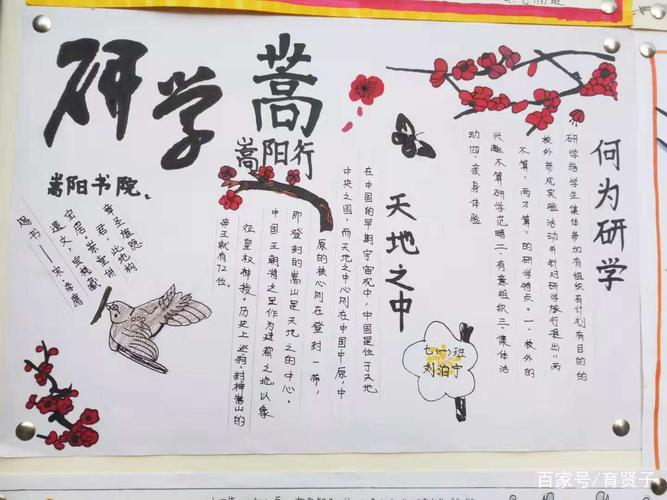 研学
嵩
嵩阳行
何为研学
研学指学生集体参加有组织有计划有目的的
校外参观实验活动并针对研学旅行提出"两
不算,两才算"的研学特点。一、校外的
兴趣不算研学范畴二、有意组织三、集体活
动四、亲身体验
天地之中
在中国的早期宇宙观中,中国是位于天地
中央之国,而天地之中心则在中国中原,中
原的核心则在登封一带,
即登封的嵩山是天地之的中心。
中国王朝将之里作为建都之地以象
征皇权神授。历史上巡狩、封禅嵩山的
帝王就有72位。
嵩阳书院。
赐书——宋李廌
七(一)班
刘泊宁
百家号/育贤子